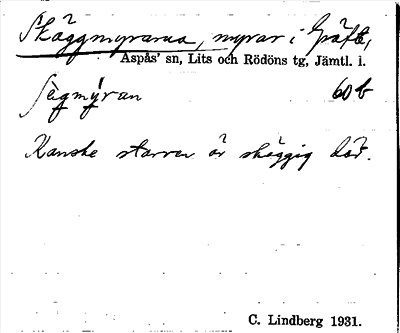 Skäggmyrarna, myrar i Gräfte,
Aspås' sn, Lits och Rödöns tg, Jämtl. i.
60 b
Kanske starren är skäggig där.
C. Lindberg 1931.